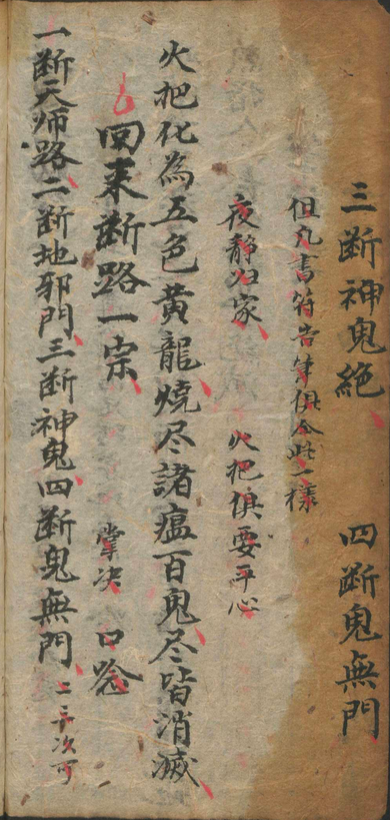 三断神鬼絶　四断鬼無門
但凡書符告筆俱念此一樣
夜静歸家　火把俱要平心
火把化為五色黄龍燒尽諸瘟百鬼尽皆消滅
回来断路一宗　掌决　口念
一断天师路二断地邪門三断神鬼四断鬼無門　二三次可